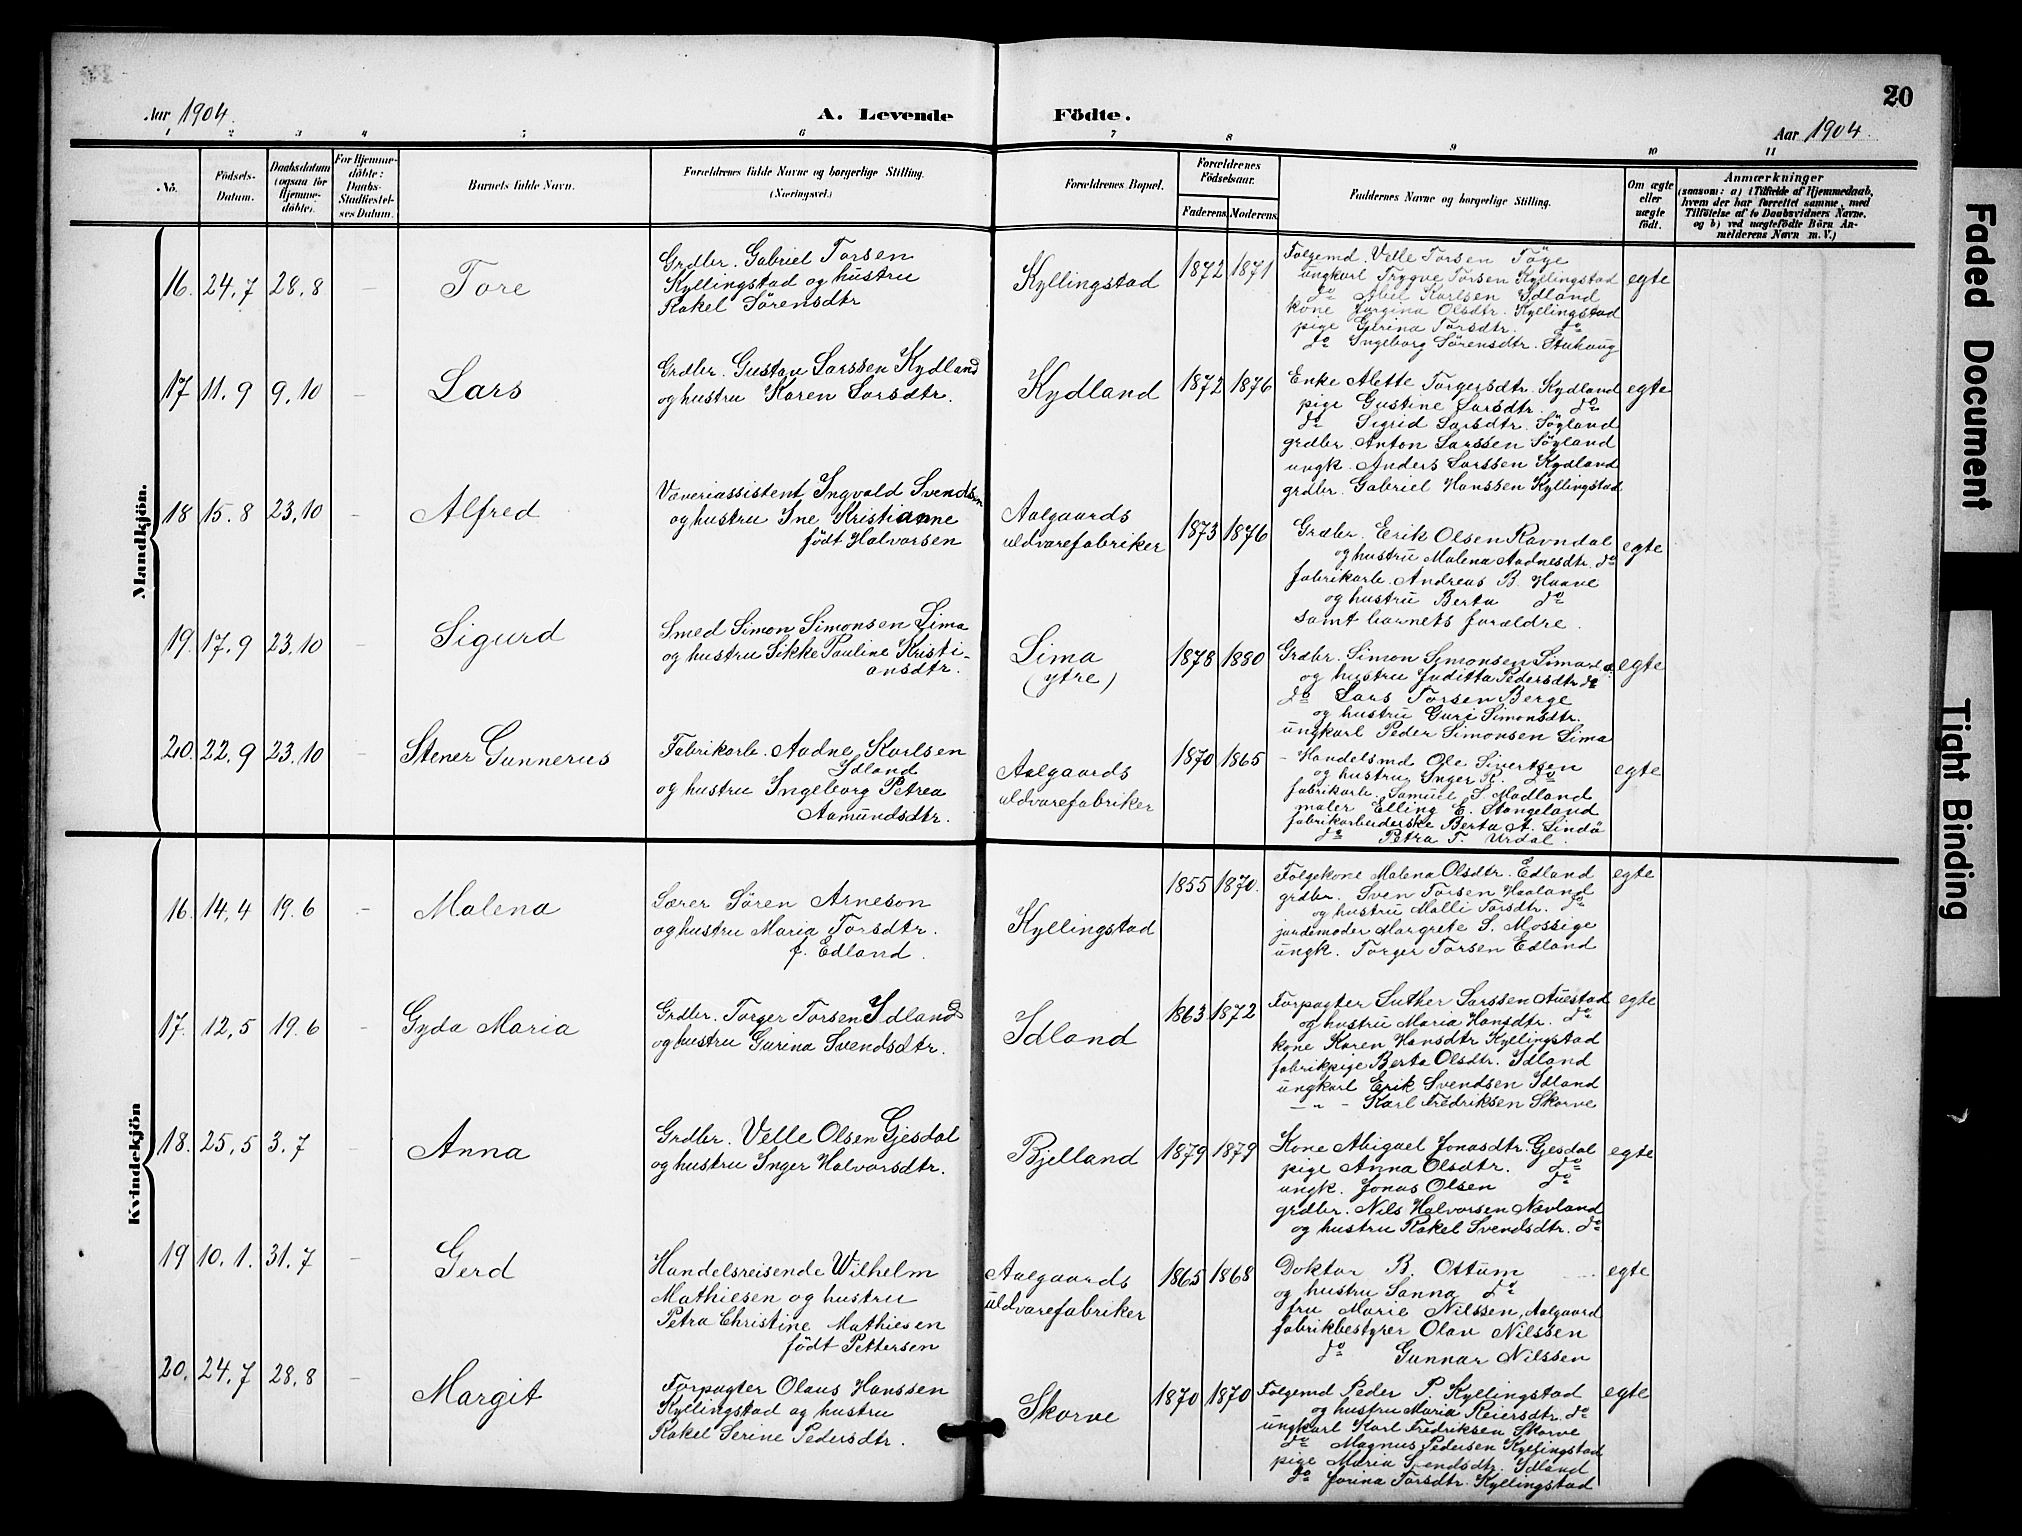 20
Aar 1904.
A. Levende
Födte.
Aar 1904.
1 2 3 4 5 6 7 8 9 10 11
No.
Födsels-
Datum.
Daabsdatum
(ogsaa for
Hjemme-
döbte).
For Hjemme-
döbte:
Daabs-
Stadfæstel-
ses Datum.
Barnets fulde Navn.
Forældrenes fulde Navne og borgerlige Stilling.
(Næringsvei.)
Forældrenes Bopæl.
Forældrenes
Födselsaar.
Faderens. Moderens.
Faddernes Navne og borgerlige Stilling.
Om ægte
eller
uægte
födt.
Anmærkninger
(saasom: a) i Tilfælde af Hjemmedaab,
hvem der har forrettet samme, med
Tilföielse af to Daabsvidners Navne.
og b) ved uægtefödte Börn An-
melderens Navn m. V.)
Mandkjön.
16. 24.7 28.8 — Tore
Grdbr. Gabriel Torsen
Kyllingstad og hustru
Rakel Sörensdtr
Kyllingstad 1872 1871
Folgemd. Velle Torsen Töge
ungkarl Trygve Torsen Kyllingstad
do Abel Karlsen Idland
kone Jorgina Olsdtr. Kyllingstad
pige Gurina Torsdtr. do
do Ingeborg Sörensdtr.
egte
17 11.9 9.10 — Lars
Grdbr. Gustav Larssen Kydland
og hustru Karen Larsdtr.
Kydland 1872 1876
Enke Alette Torgersdtr. Kydland
pige Gustine Larsdtr. do
do Sigrid Larsdtr. Söyland
grdbr. Anton Larssen Söyland
ungk. Anders Larssen Kydland
grdbr. Gabriel Hanssen Kyllingstad
egte
18 15.8 23.10 — Alfred
Væveriassistent Ingvald Svendsen
og hustru Ine Kristianne
födt Halvorsen
Aalgaards
uldvarefabriker 1873 1876
Grdbr. Erik Olsen Ravndal
og hustru Malena Aadnesdtr. do
fabrikarb. Andreas B. Haave
og hustru Berta do
samt barnets forældre.
egte
19. 17.9 23.10 — Sigurd
Smed Simon Simonsen Lima
og hustru Sikke Pauline Kristi-
ansdtr.
Lima
(ytre) 1878 1880
Grdbr. Simon Simonsen Lima
og hustru Juditta Pedersdtr do
do Lars Torsen Berge
og hustru Guri Simonsdtr.
ungkarl Peder Simonsen Lima
egte
20. 22.9 23.10 — Stener Gunnerus
Fabrikarb. Aadne Karlsen
Idland
og hustru Ingeborg Petrea
Aamundsdtr.
Aalgaards
uldvarefabriker 1870 1865
Handelsmd Ole Sivertsen
og hustru Inger R. do
fabrikarb. Samuel S. Madland
maler Elling E. Stangeland
fabrikarbeiderske Berta A. Lindö
do Petra T. Urdal.
egte
Kvindekjön
16. 14.4 19.6 — Malena
Lærer Sören Arneson
og hustru Maria Torsdtr.
f. Edland.
Kyllingstad 1855 1870.
Folgekone Malena Olsdtr. Edland
grdbr. Sven Torsen Haaland
og hustru Malli Torsdtr. do
jordemoder Margrete S. Mossige
ungk. Torger Torsen Edland
egte
17. 12.5 19.6 — Gyda Maria
Grdbr. Torger Torsen Idland
og hustru Gurina Svendsdtr.
Idland 1863 1872
Forpagter Luther Larssen Auestad
og hustru Maria Hansdtr. do
kone Karen Hansdtr Kyllingstad
fabrikpige Berta Olsdtr. Idland
ungkarl Erik Svendsen Idland
— " — Karl Fredriksen Skorve
egte
18. 25.5 3.7 — Anna
Grdbr. Velle Olsen Gjesdal
og hustru Inger Halvorsdtr.
Bjelland 1879 1879
Kone Abigael Jonasdtr. Gjesdal
pige Anna Olsdtr. do
ungk. Jonas Olsen do
grdbr. Nils Halvorsen Nævland
og hustru Rakel Svendsdtr. do
egte
19 10.1. 31.7 — Gerd
Handelsreisende Wilhelm
Mathiesen og hustru
Petra Christine Mathiesen
födt Pettersen
Aalgaards
uldvarefabriker 1865 1868
Doktor B. Ottum
og hustru Sanna do
fru Marie Nilssen, Aalgaard
fabrikbestyrer Olav Nilssen
do Gunnar Nilssen
egte
20. 24.7 28.8 — Margit
Forpagter Olaus Hanssen
Kyllingstad og hustru
Rakel Serine Pedersdtr.
Skorve 1870 1870
Folgemd Peder P. Kyllingstad
og hustru Maria Reiersdtr. do
ungkarl Karl Fredriksen Skorve
do Magnus Pedersen Kyllingstad
pige Maria Svendsdtr. Idland
do Jorina Torsdtr. Kyllingstad
egte
Faded Document
Tight Binding